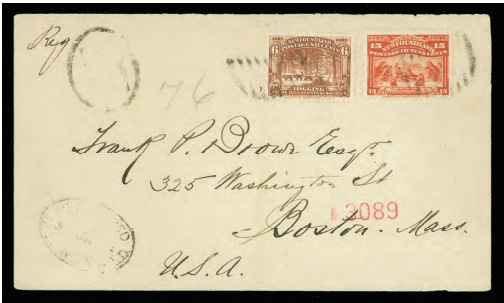 Reg
76
6 NEWFOUNDLAND 6
POSTAGE SIX CENTS
LOGGING
15 NEWFOUNDLAND 15
POSTAGE FIFTEEN CENTS
15 15
Frank P. Brown Esqr.
325 Washington St
2089
Boston. Mass.
U.S.A.